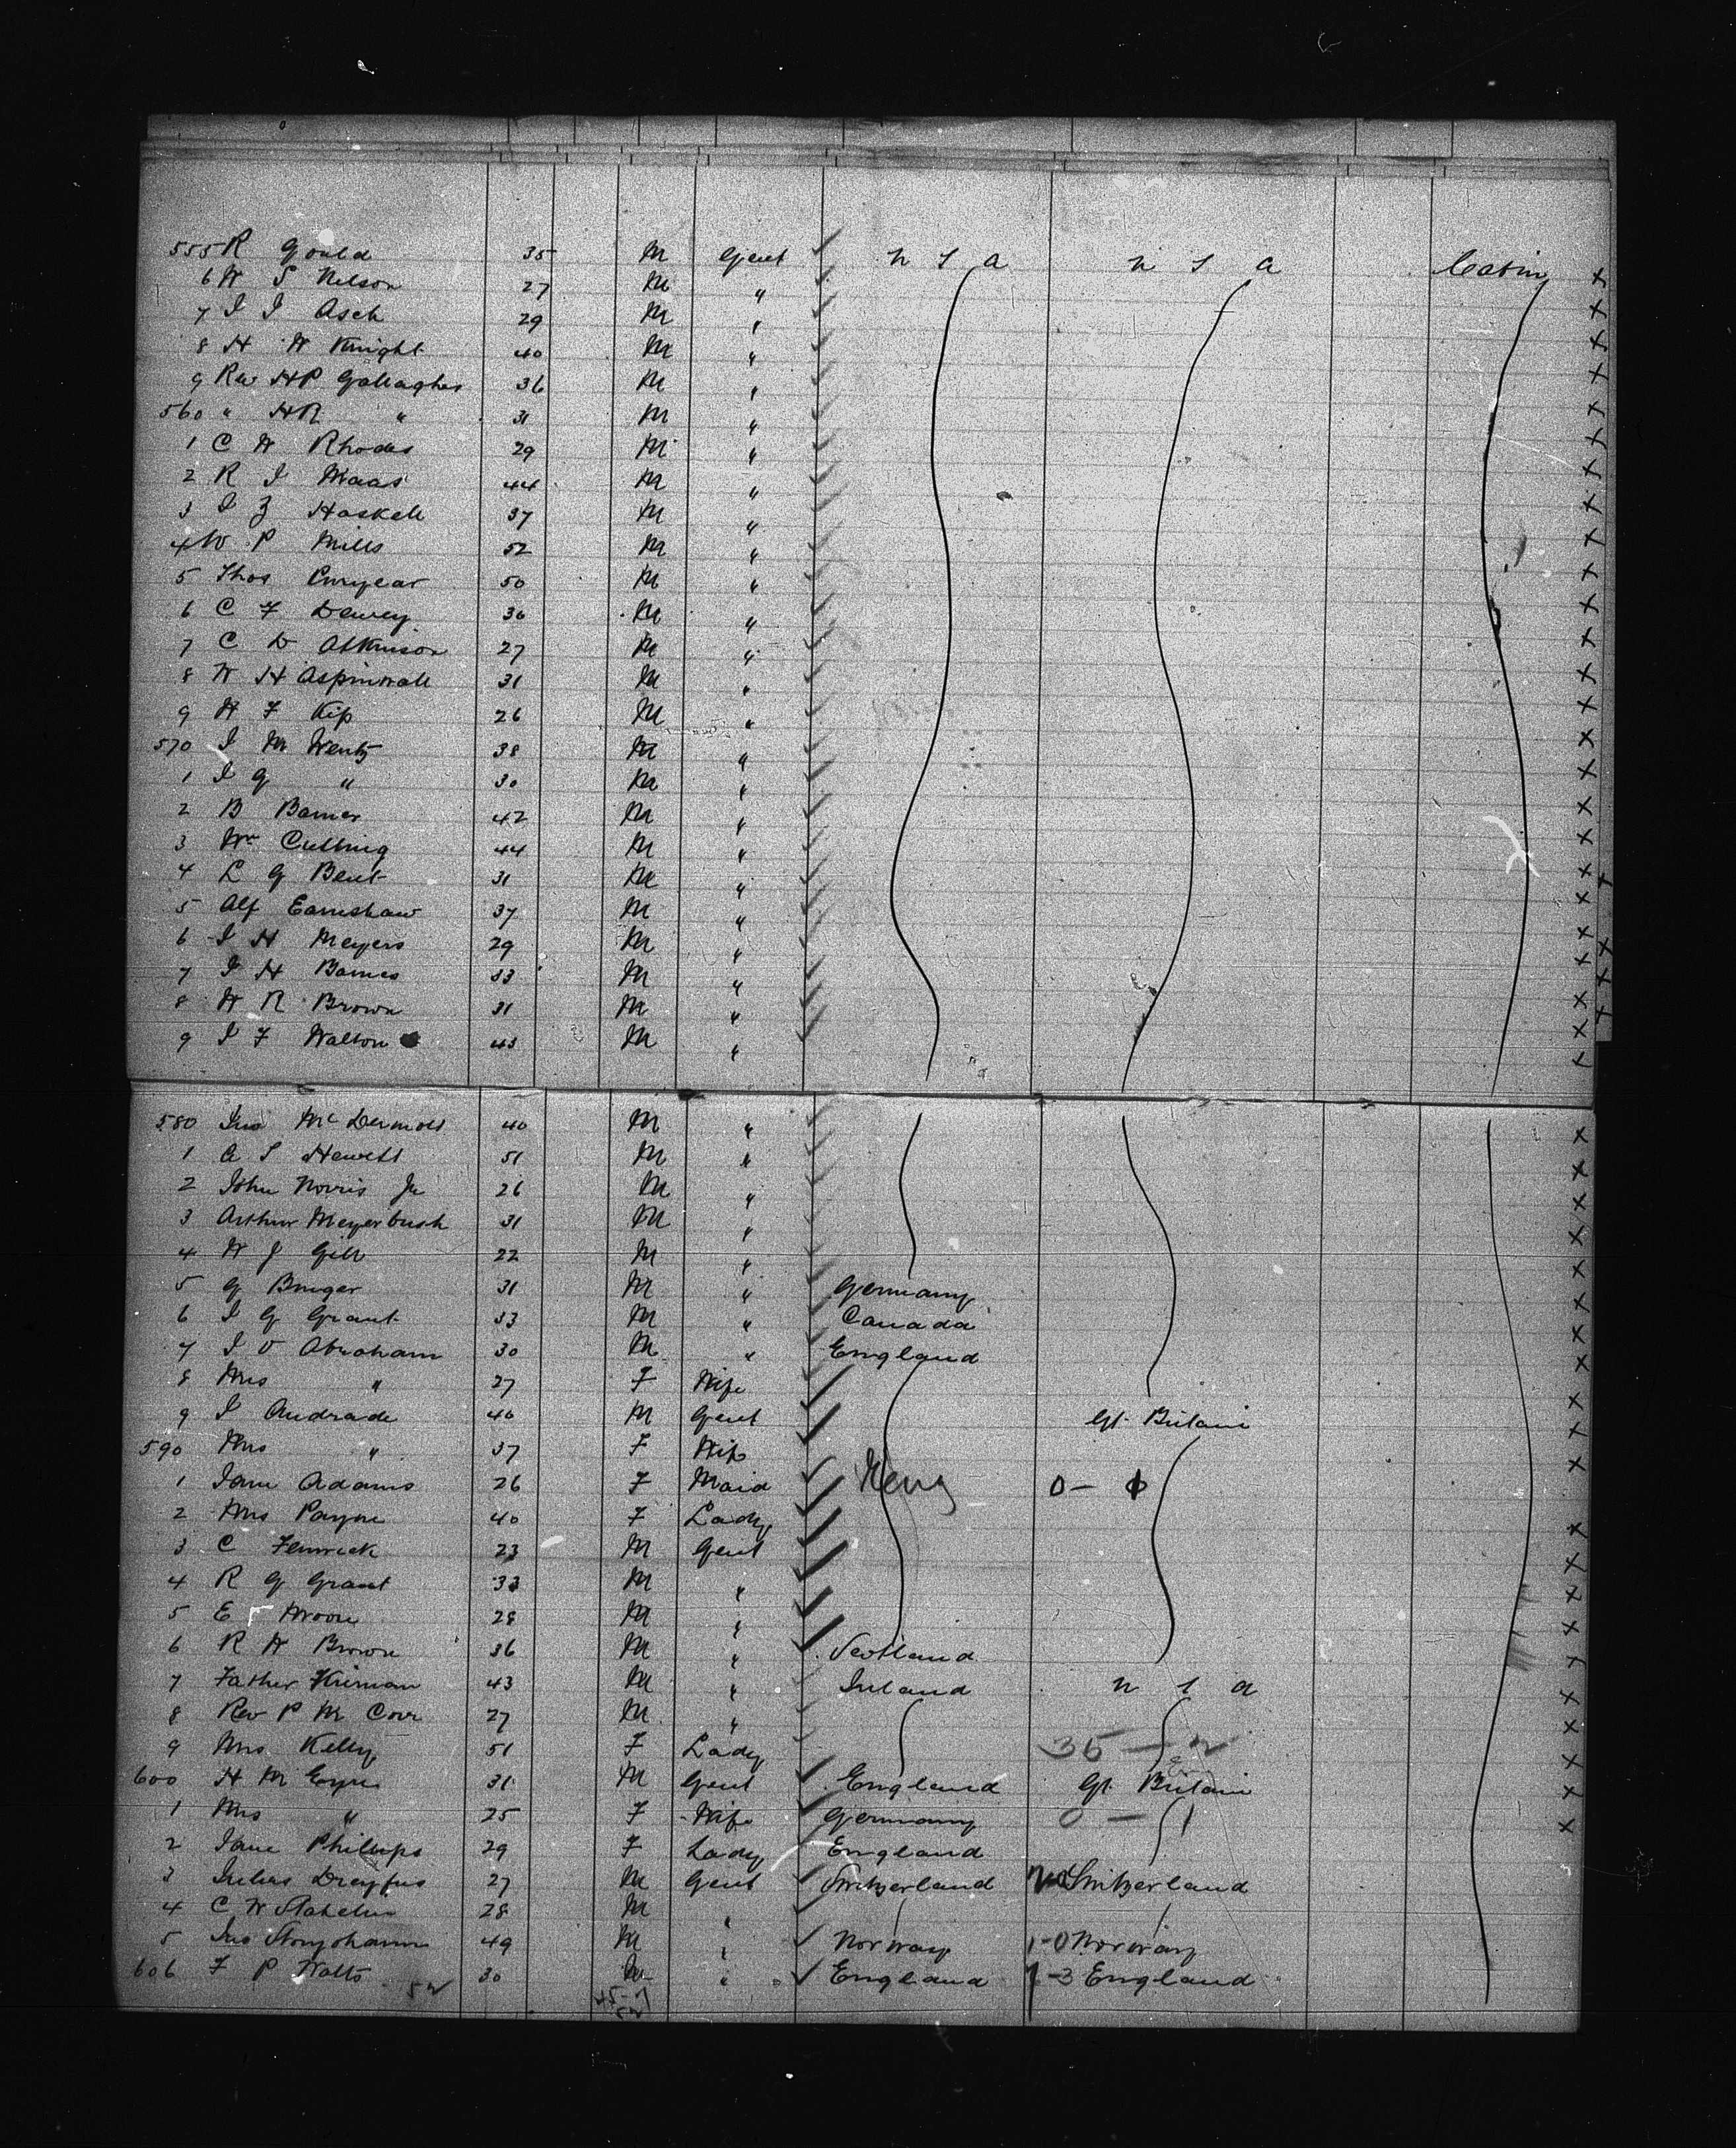 555 R Gould 35 M Gent U S A U S A Cabin
6 W S Nelson 27 M "
7 I I Asch 29 M "
8 H W Knight 40 M "
9 Rev HP Gallagher 36 M "
560 " HR " 31 M "
1 C W Rhodes 29 M "
2 R I Maas 44 M "
3 I Z Haskell 37 M "
4 W P Mills 52 M "
5 Thos Puryear 50 M "
6 C F Dewey 30 M "
7 C D Atkinson 27 M "
8 W H Aspinwall 31 M "
9 H F Kip 26 M "
570 I M Wentz 38 M "
1 I G " 30 M "
2 B Barner 42 M "
3 Wm Cutting 44 M "
4 L G Bent 31 M "
5 Alf Earnshaw 37 M "
6 I H Meyers 29 M "
7 I H Barnes 33 M "
8 H R Brown 31 M "
9 I F Walton 43 M "
580 Jno McDermott 40 M "
1 A S Hewitt 51 M "
2 John Norris Jr 26 M "
3 Arthur Meyerbush 31 M "
4 W J Gill 22 M "
5 G Bruger 31 M " Germany
6 I G Grant 33 M " Canada
7 I V Abraham 30 M " England
8 Mrs " 27 F Wife
9 I Andrade 40 M Gent Gt Britain
590 Mrs " 37 F Wife
1 Jane Adams 26 F Maid 0 -
2 Mrs Payne 40 F Lady
3 C Fenwick 23 M Gent
4 R G Grant 33 M "
5 E Moore 28 M "
6 R H Brown 36 M " Scotland
7 Father 43 M " Ireland U S A
8 Rev P M Corr 27 M "
9 Mrs Kelly 51 F Lady
600 H M Eyre 31 M Gent England Gt Britain
1 Mrs " 25 F Wife Germany 0 - 1
2 Jane Phillips 29 F Lady England
3 Julius Dreyfus 27 M Gent Switzerland Switzerland
4 C W Stahelin 28 M "
5 Jno 49 M " Norway 1-0 Norway
606 F P Watts 30 M " England 1-3 England
52